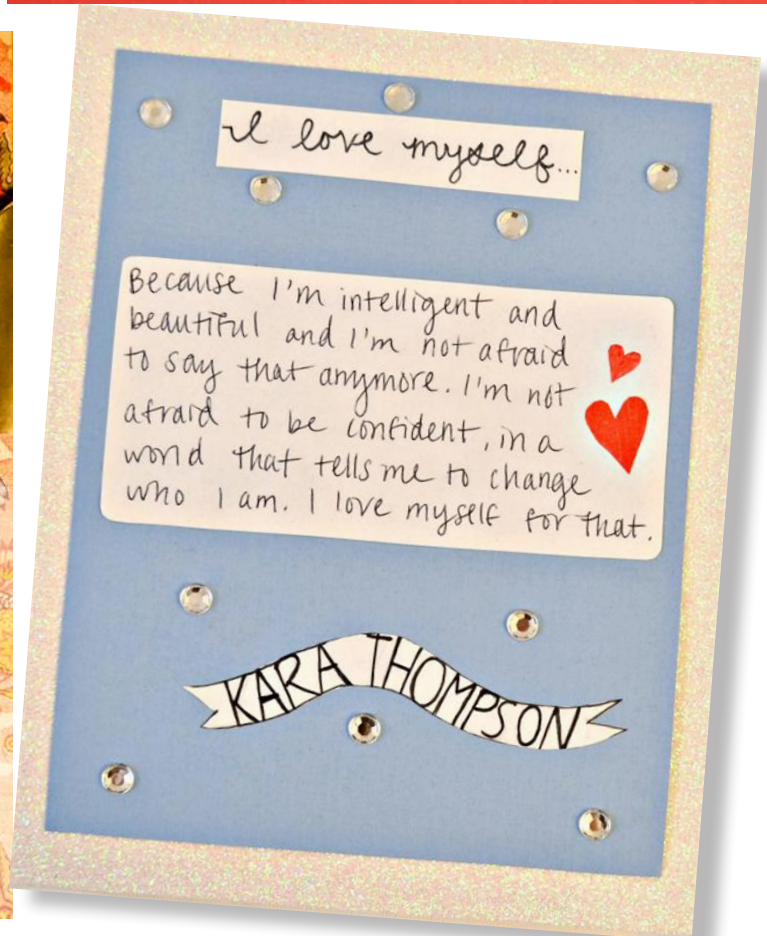 I love myself...
Because I'm intelligent and
beautiful and I'm not afraid
to say that anymore. I'm not
afraid to be confident, in a
world that tells me to change
who I am. I love myself for that.
KARA THOMPSON